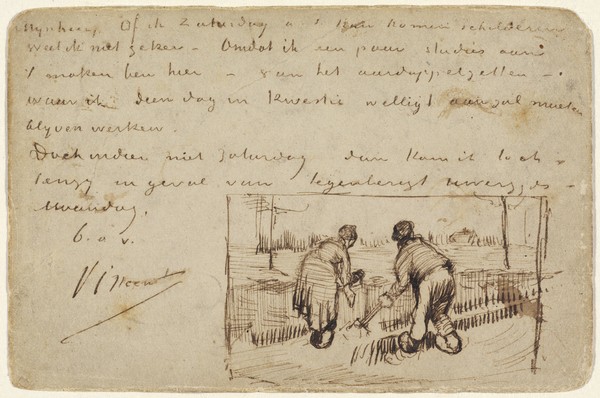 Of ik Zaturdag a. s. kan komen schilderen
weet ik niet zeker – Omdat ik een paar studies aan
't maken ben hier – van het aardappelzetten –
waar ik dien dag in kwestie aan zal moeten
blyven werken.
Doch indien niet Zaturdag dan kom ik toch –
tenzy in geval van tegenberigt uwerzyds –
Maandag.
b. a. v.
Vincent